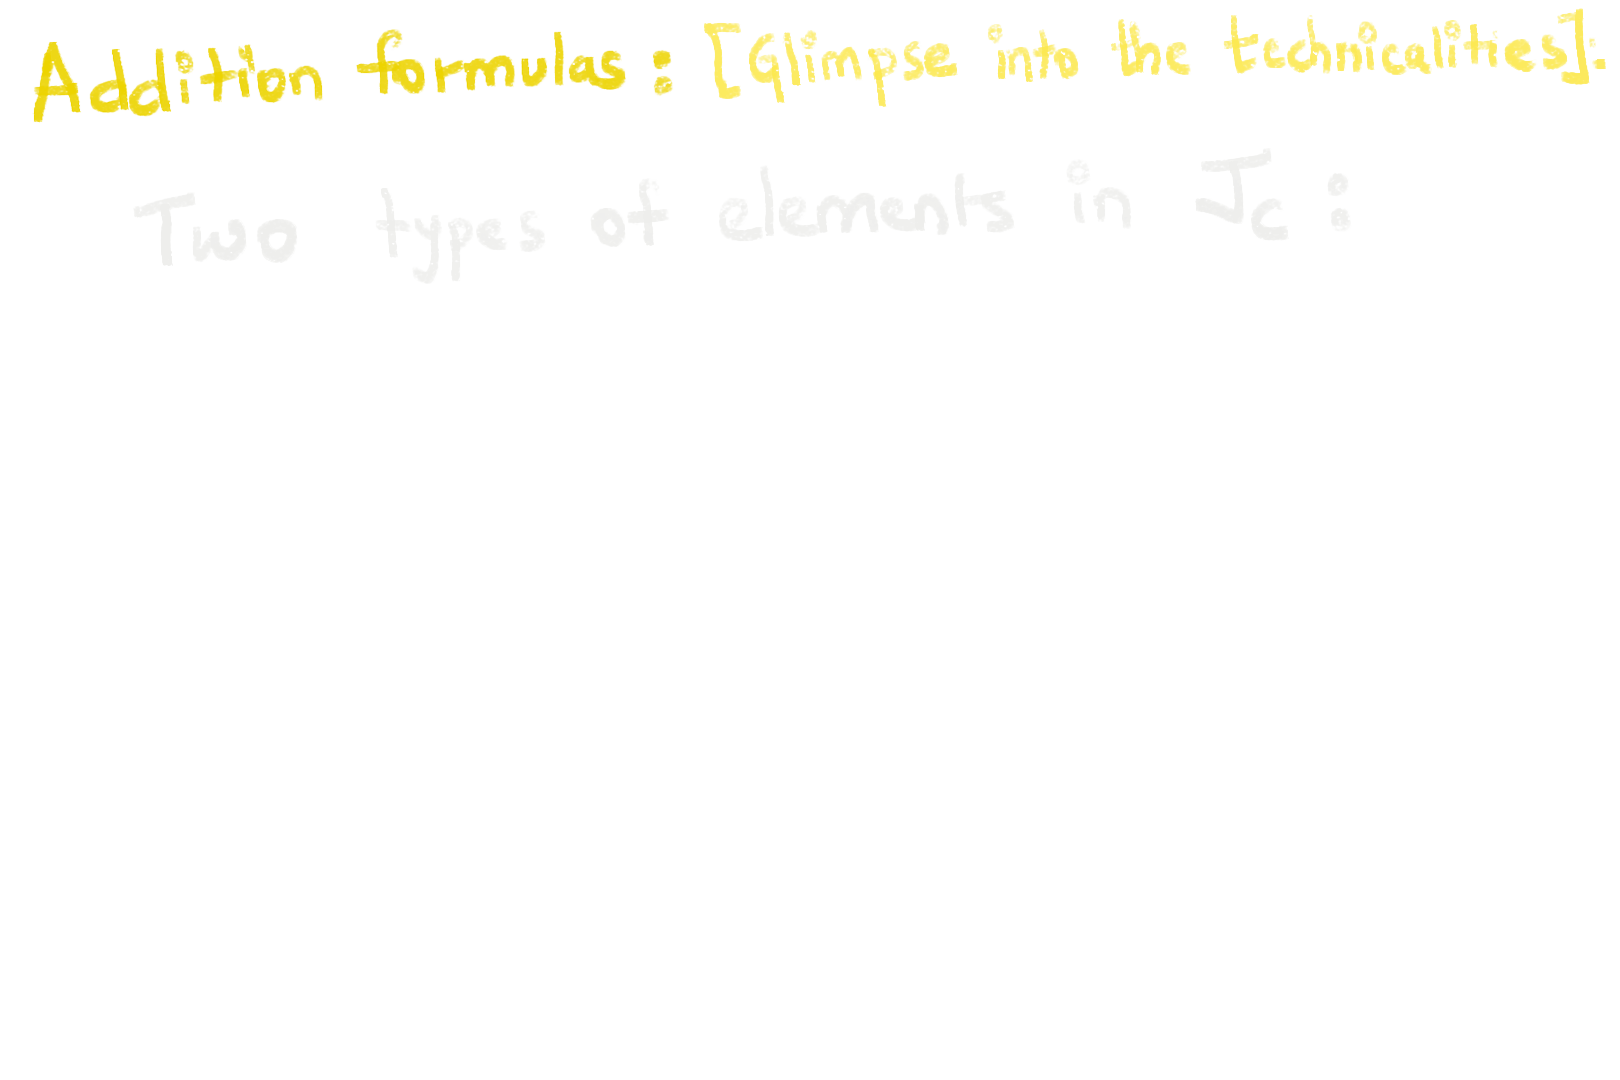 Addition formulas: [Glimpse into the technicalities].
Two types of elements in Jc: